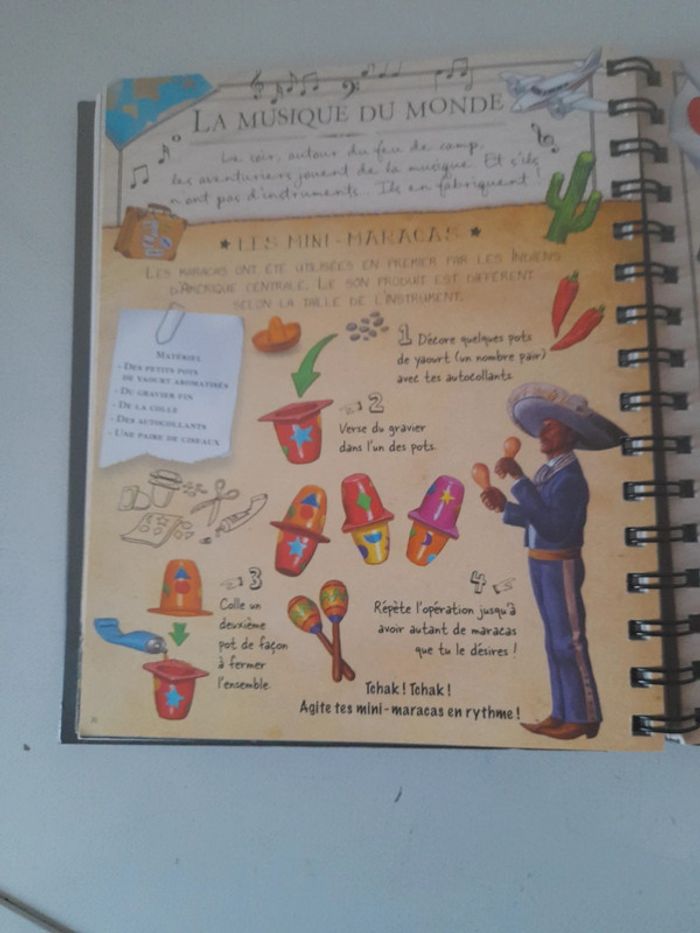 LA MUSIQUE DU MONDE
Le soir, autour du feu de camp,
les aventuriers jouent de la musique. Et s'ils
n'ont pas d'instruments... Ils en fabriquent !
★ LES MINI-MARACAS ★
LES MARACAS ONT ÉTÉ UTILISÉES EN PREMIER PAR LES INDIENS
D'AMÉRIQUE CENTRALE. LE SON PRODUIT EST DIFFÉRENT
SELON LA TAILLE DE L'INSTRUMENT.
MATÉRIEL
- DES PETITS POTS
DE YAOURT AROMATISÉS
- DU GRAVIER FIN
- DE LA COLLE
- DES AUTOCOLLANTS
- UNE PAIRE DE CISEAUX
1 Décore quelques pots
de yaourt (un nombre pair)
avec tes autocollants.
2
Verse du gravier
dans l'un des pots.
3
Colle un
deuxième
pot de façon
à fermer
l'ensemble.
4
Répète l'opération jusqu'à
avoir autant de maracas
que tu le désires !
Tchak ! Tchak !
Agite tes mini-maracas en rythme !